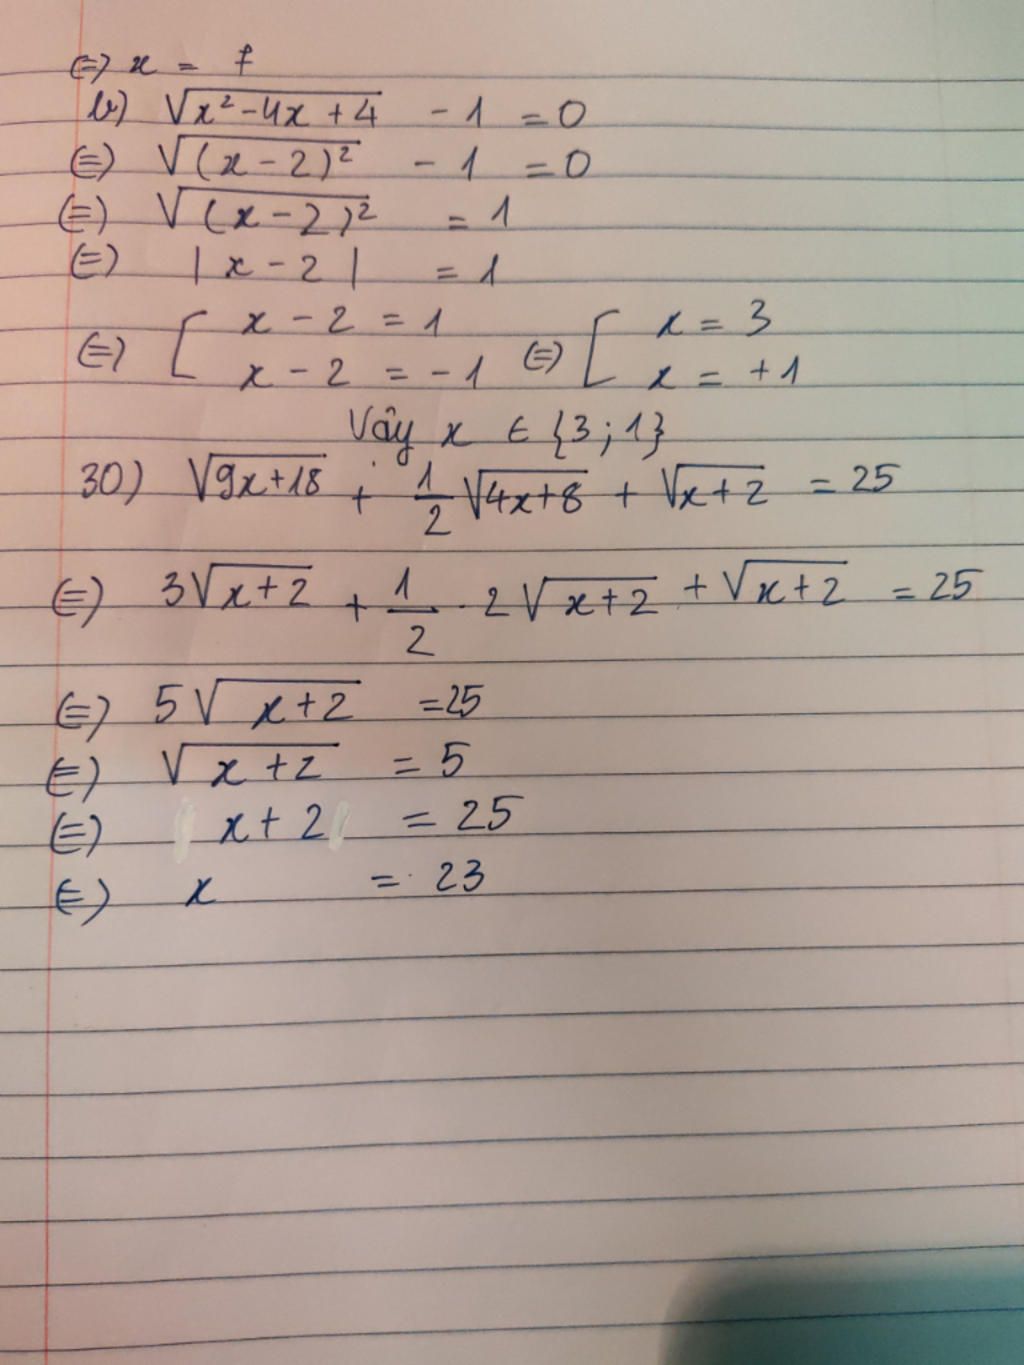 (=) x = 7
b) √(x² - 4x + 4) - 1 = 0
(=) √((x - 2)²) - 1 = 0
(=) √((x - 2)²) = 1
(=) |x - 2| = 1
(=) [ x - 2 = 1 (=) [ x = 3
x - 2 = -1 x = +1
Vậy x ∈ {3; 1}
30) √(9x+18) + 1/2 √(4x+8) + √(x+2) = 25
(=) 3√(x+2) + 1/2 · 2√(x+2) + √(x+2) = 25
(=) 5√(x+2) = 25
(=) √(x+2) = 5
(=) x + 2 = 25
(=) x = 23